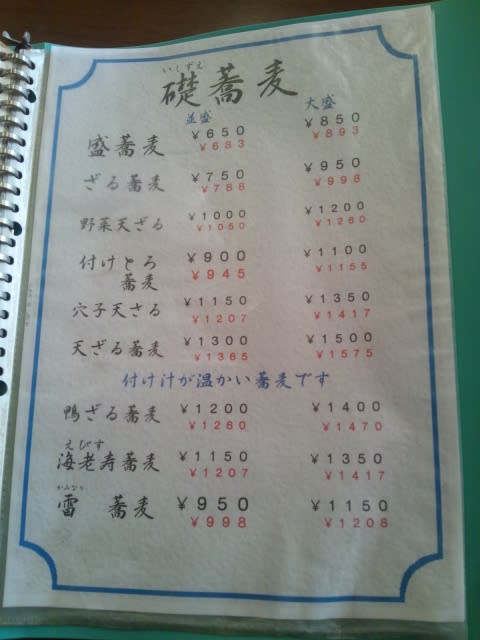 いしずえ
礎蕎麦
並盛 大盛
盛蕎麦 ¥650 ¥850
¥683 ¥893
ざる蕎麦 ¥750 ¥950
¥788 ¥998
野菜天ざる ¥1000 ¥1200
¥1050 ¥1260
付けとろ ¥900 ¥1100
蕎麦 ¥945 ¥1155
穴子天ざる ¥1150 ¥1350
¥1207 ¥1417
天ざる蕎麦 ¥1300 ¥1500
¥1365 ¥1575
付け汁が温かい蕎麦です
鴨ざる蕎麦 ¥1200 ¥1400
¥1260 ¥1470
えびす
海老寿蕎麦 ¥1150 ¥1350
¥1207 ¥1417
かみなり
雷 蕎麦 ¥950 ¥1150
¥998 ¥1208